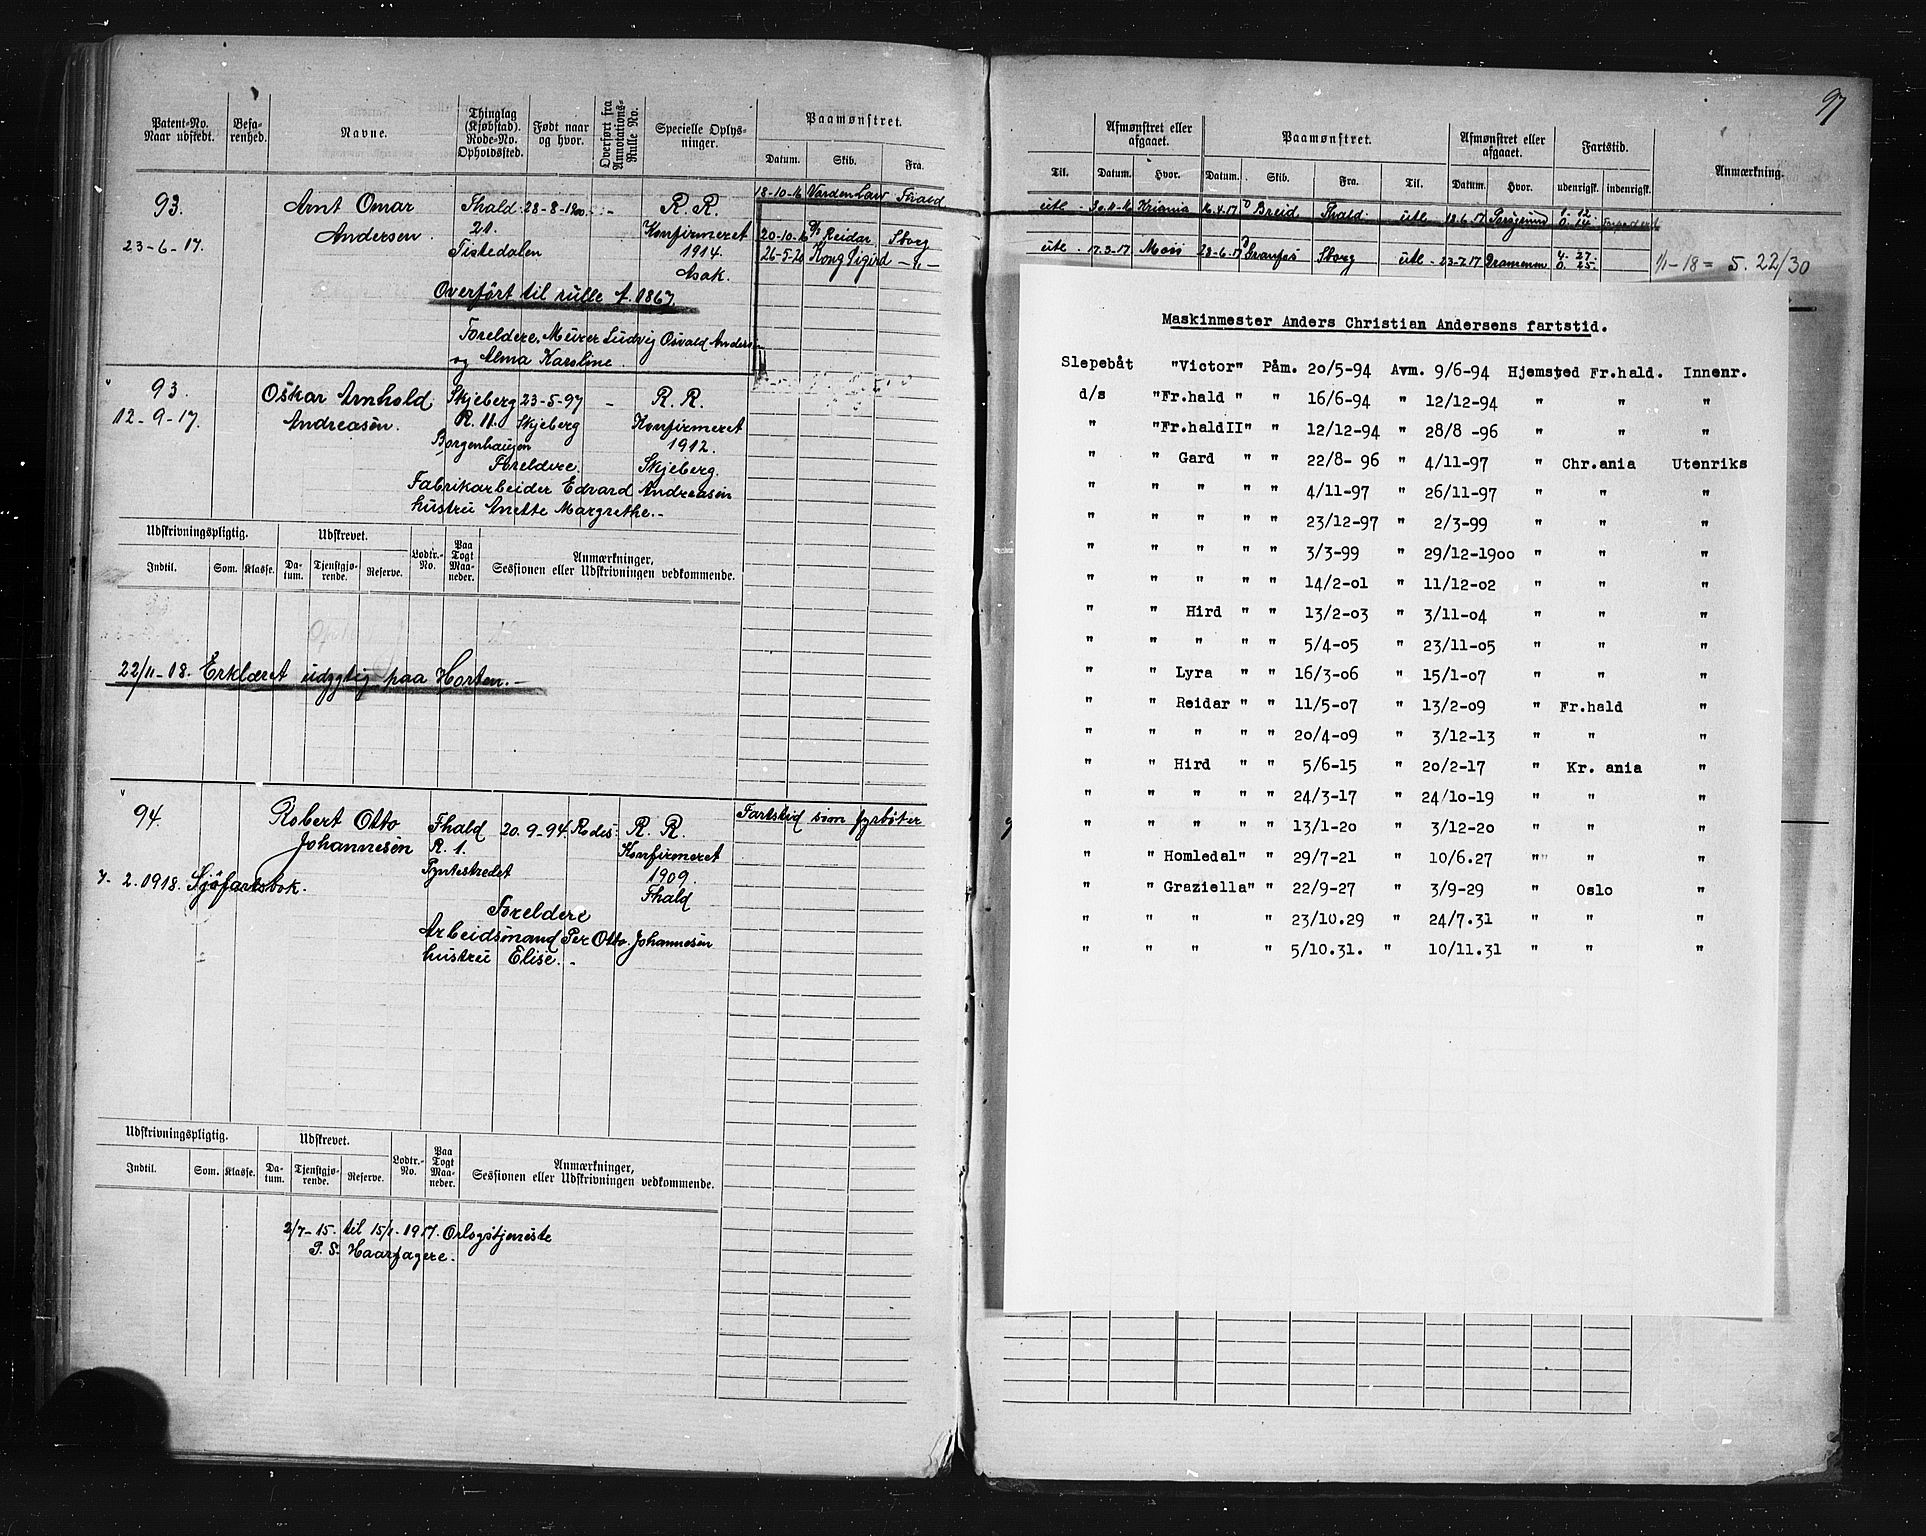 Patent-No. Naar udstedt.
Befa-renhed.
Navne.
Thinglag (Kjøbstad). Rode-No. Opholdssted.
Født naar og hvor.
Overført fra Annotations-Rulle No.
Specielle Oplys-ninger.
Paamønstret.
Datum. Skib. Fra.
93.
23-6-17.
Arnt Omar
Andersen
Fhald
21.
Tistedalen
28-8-1900.
-
R. R.
Konfirmeret
1914.
Asak.
18-10-16 Fhald
20-10-16 Reidar Sborg
26-5-20 Kong Sigurd -"-
Overført til rulle f. 1867.
Foreldere, Murer Ludvig Osvald Anders
og Alma Karoline.
93.
12-9-17.
Oskar Arnhold
Andreasen.
Skjeberg
R. 11.
Borgenhaugen
23-5-97
Skjeberg
-
R. R.
Konfirmeret
1912.
Skjeberg.
Foreldere.
Fabrikarbeider Edvard Andreasen
hustru Anette Margrethe.-
Udskrivningspligtig. Udskrevet. Lodtr.-No. Paa Togt Maa-neder. Anmærkninger, Sessionen eller Udskrivningen vedkommende.
Indtil. Som. Klasse. Da-tum. Tjenstgjø-rende. Reserve.
22/11-18. Erklæret udygtig paa Horten.-
94.
Robert Otto
Johannesen
Fhald
R. 1.
Pyntestredet
20.9-94.
Rodes:
R. R.
Konfirmeret
1909.
Fhald
Fartstid som fyrbøter
2.1918. Sjøfartsbok.
Foreldere
Arbeidsmand Per Otto Johannesen
hustru Elise.-
Udskrivningspligtig. Udskrevet. Lodtr.-No. Paa Togt Maa-neder. Anmærkninger, Sessionen eller Udskrivningen vedkommende.
Indtil. Som. Klasse. Da-tum. Tjenstgjø-rende. Reserve.
2/7-15. til 15/1.1917. Orlogstjeneste
P. S. Haarfagere.
97
Afmønstret eller afgaaet. Paamønstret. Afmønstret eller afgaaet. Fartstid. Anmærkning.
Til. Datum. Hvor. Datum. Skib. Fra. Til. Datum. Hvor. udenrigsk. indenrigsk.
utl - 30.11-16 Kriania 16.4.17 Breid Fhald utl
utl - 17.3-17 Moss 23-6-17 Granfos Sborg utl - 23-7.17 Drammen 1/1-18 = 5. 22/30
Maskinmester Anders Christian Andersens fartstid.
Slepebåt "Victor" Påm. 20/5-94 Avm. 9/6-94 Hjemsted Fr.hald. Innenr.
d/s "Fr.hald " " 16/6-94 " 12/12-94 " " "
" "Fr.haldII" " 12/12-94 " 28/8 -96 " " "
" " Gard " " 22/8- 96 " 4/11-97 " Chr.ania Utenriks
" " " " " 4/11-97 " 26/11-97 " " "
" " " " " 23/12-97 " 2/3-99 " " "
" " " " " 3/3-99 " 29/12-1900 " " "
" " " " " 14/2-01 " 11/12-02 " " "
" " Hird " " 13/2-03 " 3/11-04 " " "
" " " " " 5/4-05 " 23/11-05 " " "
" " Lyra " " 16/3-06 " 15/1-07 " " "
" " Reidar " " 11/5-07 " 13/2-09 " Fr.hald "
" " " " " 20/4-09 " 3/12-13 " " "
" " Hird " " 5/6-15 " 20/2-17 " Kr. ania "
" " " " " 24/3-17 " 24/10-19 " " "
" " " " " 13/1-20 " 3/12-20 " " "
" " Homledal" " 29/7-21 " 10/6.27 " " "
" " Graziella" " 22/9-27 " 3/9-29 " Oslo "
" " " " 23/10.29 " 24/7.31 " " "
" " " " 5/10.31. " 10/11.31 " " "